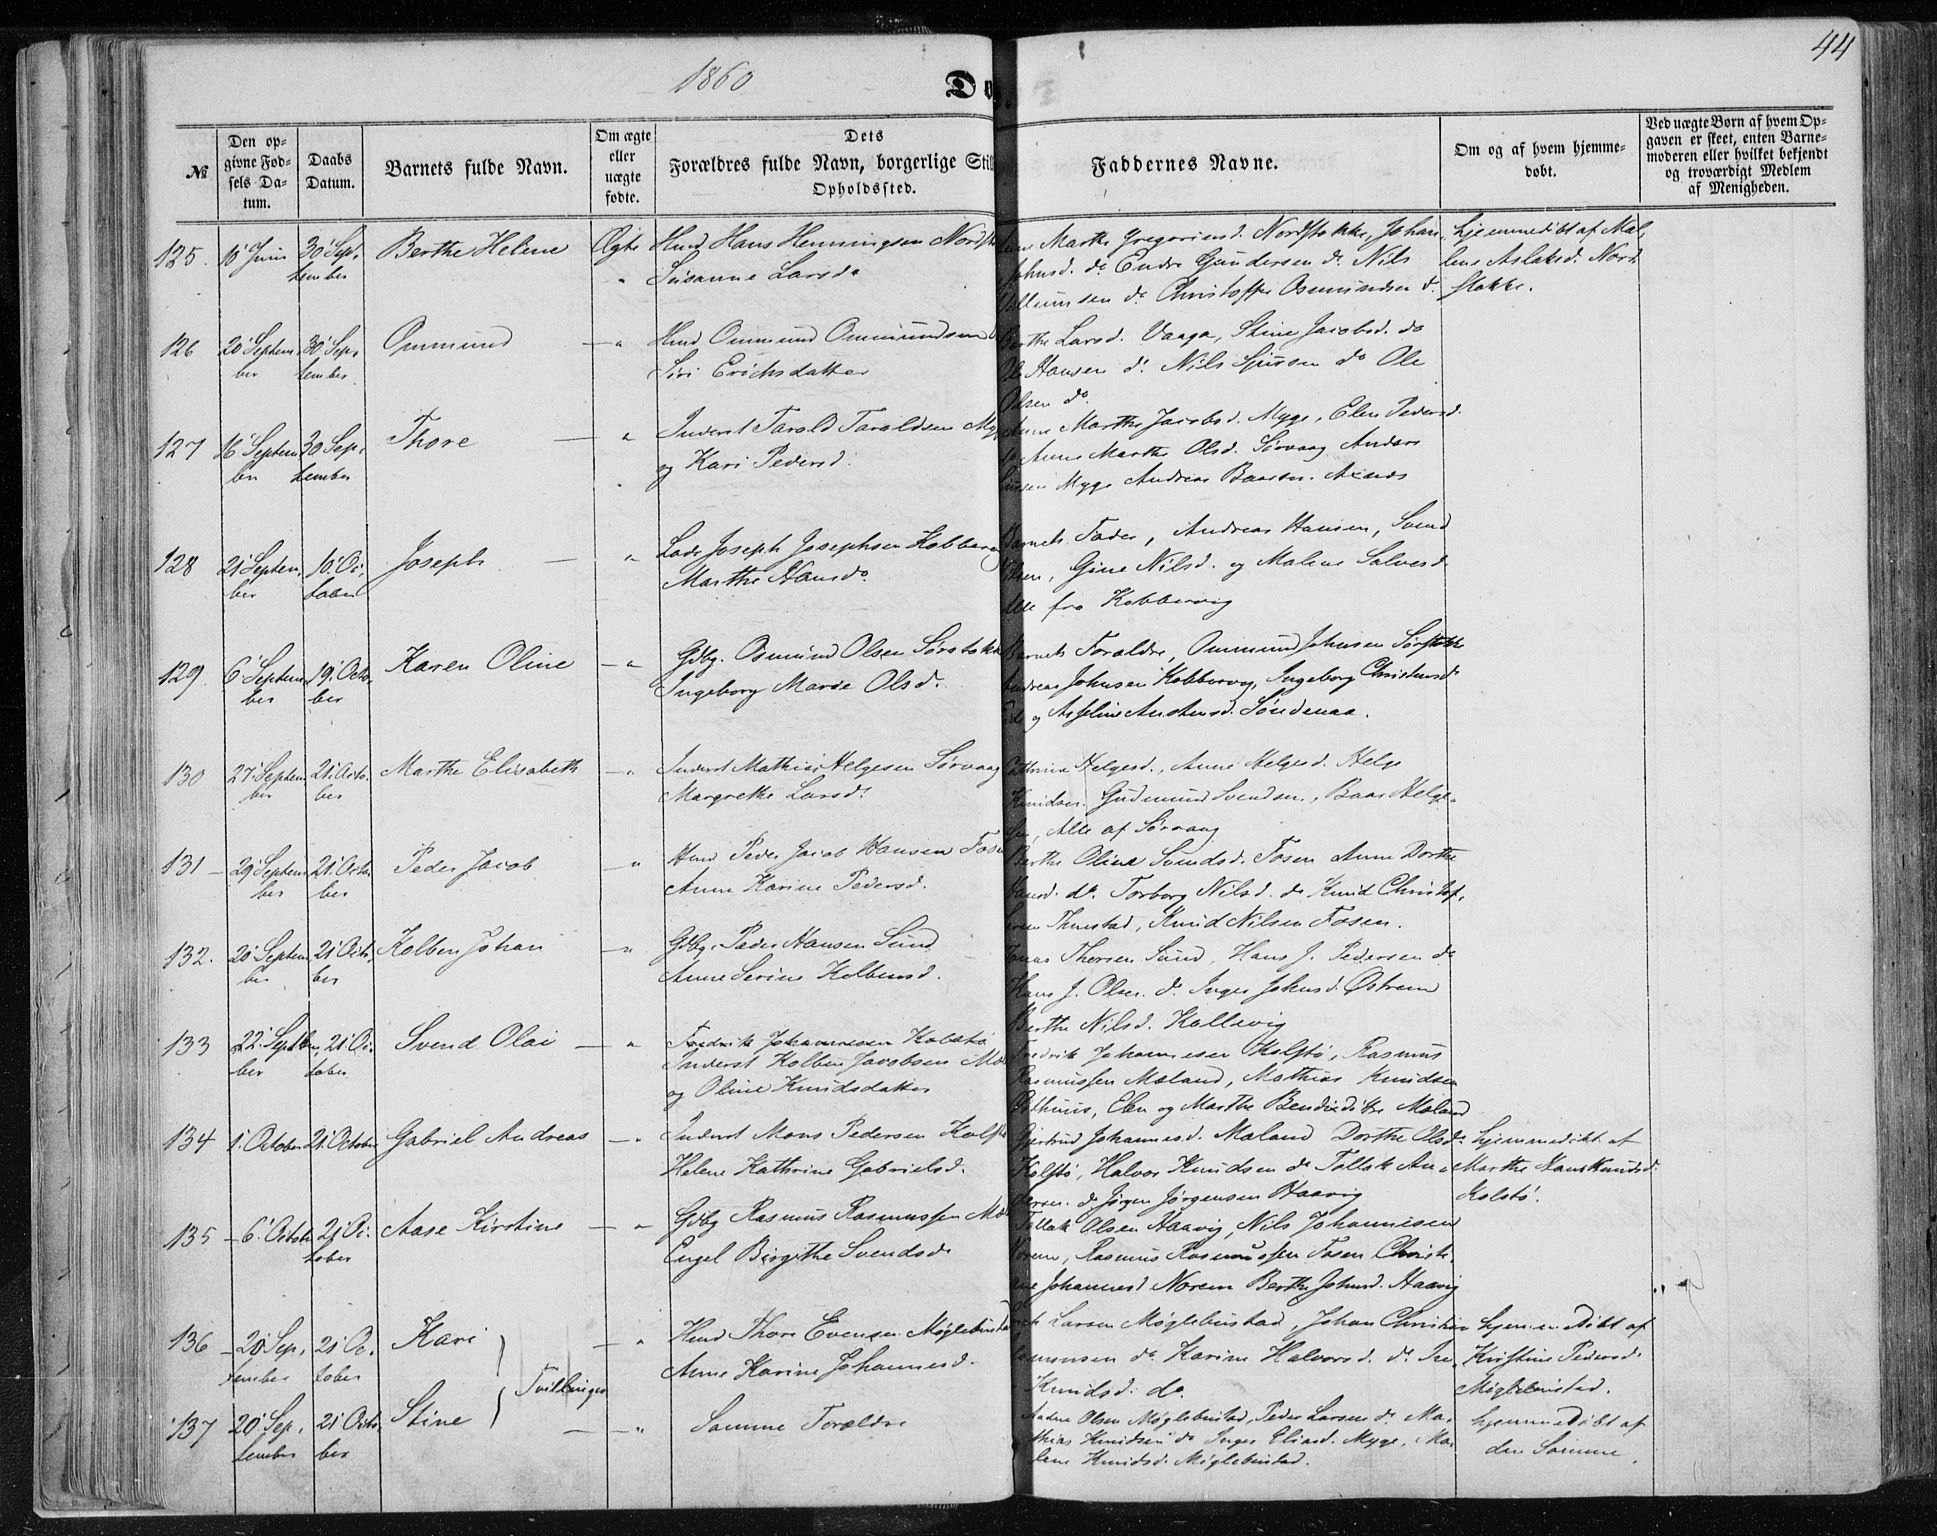 44
1860
Dø
№
Den op-
givne Fød-
sels Da-
tum.
Daabs
Datum.
Barnets fulde Navn.
Om ægte
eller
uægte
fødte.
Dets
Forældres fulde Navn, borgerlige Stil
Opholdssted.
Faddernes Navne.
Om og af hvem hjemme-
døbt.
Ved uægte Børn af hvem Op-
gaven er skeet, enten Barne-
moderen eller hvilket bekjendt
og troværdigt Medlem
af Menigheden.
125. 10 Juni 30 Sep-
tember
Berthe Helene Ægte Hmd Hans Henningsen
Susanne Larsd.
Marthe Gregoriusd. Nordstokke, Johan
Johnsd. do Endre Gundersen do Nils
do Christoffer Osmundsen do
hjemmedøbt af Ma-
lene Aslaksd. Nord-
stokke.
126 20 Septem-
ber 30 Sep-
tember
Ommund " Hmd Ommund Ommundsen
Siri Erichsdatter
Larsd. Vaaga, Stine Jacobsd. do
Hansen do Nils Sjursen do Ole
Olsen do
127 16 Septem-
ber 30 Sep-
tember
Thore " Inderst Tarald Taraldsen
og Kari Pedersd.
Marthe Jacobsd. Myge, Elen Pedersd.
Anne Marthe Olsd. Sørvaag Anders
Myge Andreas
128 21 Septem-
ber 10 Oc-
tober
Joseph " Lods Joseph Josephsen
Marthe Hansd.
Barnets Fader, Andreas Hansen, Svend
Gine Nilsd. og Malene Salvesd.
Alle fra Kobbervig
129 6 Septem-
ber 19 Octo-
ber
Karen Oline " Gdbg. Osmund Olsen Sørstokke
Ingeborg Marie Olsd.
Barnets Forældre, Ommund Johnsen Sørstokke
Andreas Johnsen Kobbervig, Ingeborg
og Asseline Sundenaa.
130 27 Septem-
ber 21 Octo-
ber
Marthe Elisabeth " Inderst Mathias Helgesen Sørvaag
Margrethe Larsd.
Cathrine Helgesd., Anne Helgesd. Helge
Knudsen. Gudmund Svendsen, Baar Helge-
sen, Alle af Sørvaag
131 29 Septem-
ber 21 Octo-
ber
Peder Jacob " Hmd Peder Jacob Hansen
Anne Karine Pedersd.
Berthe Oline Svendsd. Fosen Anne Dorthe
Hansd. do Torborg Nilsd. do Knud Christof-
Knud Nilsen Fosen.
132. 20 Septem-
ber 21 Octo-
ber
Kolben Johan " Gdbg. Peder Hansen Sund
Anne Serine Kolbensd.
Jonas Thorsen Sund, Hans J. Pedersen do
Hans J. Olsen do Inger Johnsd. Østrem
Berthe Nilsd. Kallevig
133 22 Septem-
ber 21 Oc-
tober
Svend Olai " Fredrik Johannesen Kolstø
Inderst Kolben Jacobsen
og Oline Knudsdatter
Fredrik Johannesen Kolstø, Rasmus
Rasmussen Mæland, Mathias Knudsen
Elen og Marthe Mæland
134 1 October 21 October Gabriel Andreas " Inderst Mons Pedersen
Helene Kathrine Gabrielsd.
Gjertrud Johannesd. Mæland Dorthe Olsd.
Kolstø, Halvor Knudsen do Tallak An-
dersen do Jørgen Jørgensen Haavig
hjemmedøbt af
Marthe Knudsd.
Kolstø.
135 6 Octob. 21 Oc-
tober
Aase Kirstine " Gdbg Rasmus Rasmussen
Engel Birgithe Svendsd.
Tallak Olsen Haavig, Nils Johannesen
Norem, Rasmus Rasmussen Fosen Christi-
ne Johannesd Norem Berthe Johnsd. Haavig
136 20 Sep-
tember 21 Oc-
tober
Kari " Hmd Thore Evensen Møglebustad
Anne Karine Johannesd.
Larsen Møglebustad, Johan Christian
do Karine Halvorsd. do
Knudsd. do.
hjemmedøbt af
Kirstine Pedersd.
Møglebustad.
Tvillinger
137 20 Sep-
tember 21 Octo-
ber
Stine " Samme Forældre
Olsen Møglebustad, Peder Larsen do Ma-
thias Knudsen do Inger Eliasd. Myge, Ma-
lene Knudsd. Møglebustad.
hjemmedøbt af
den Samme.